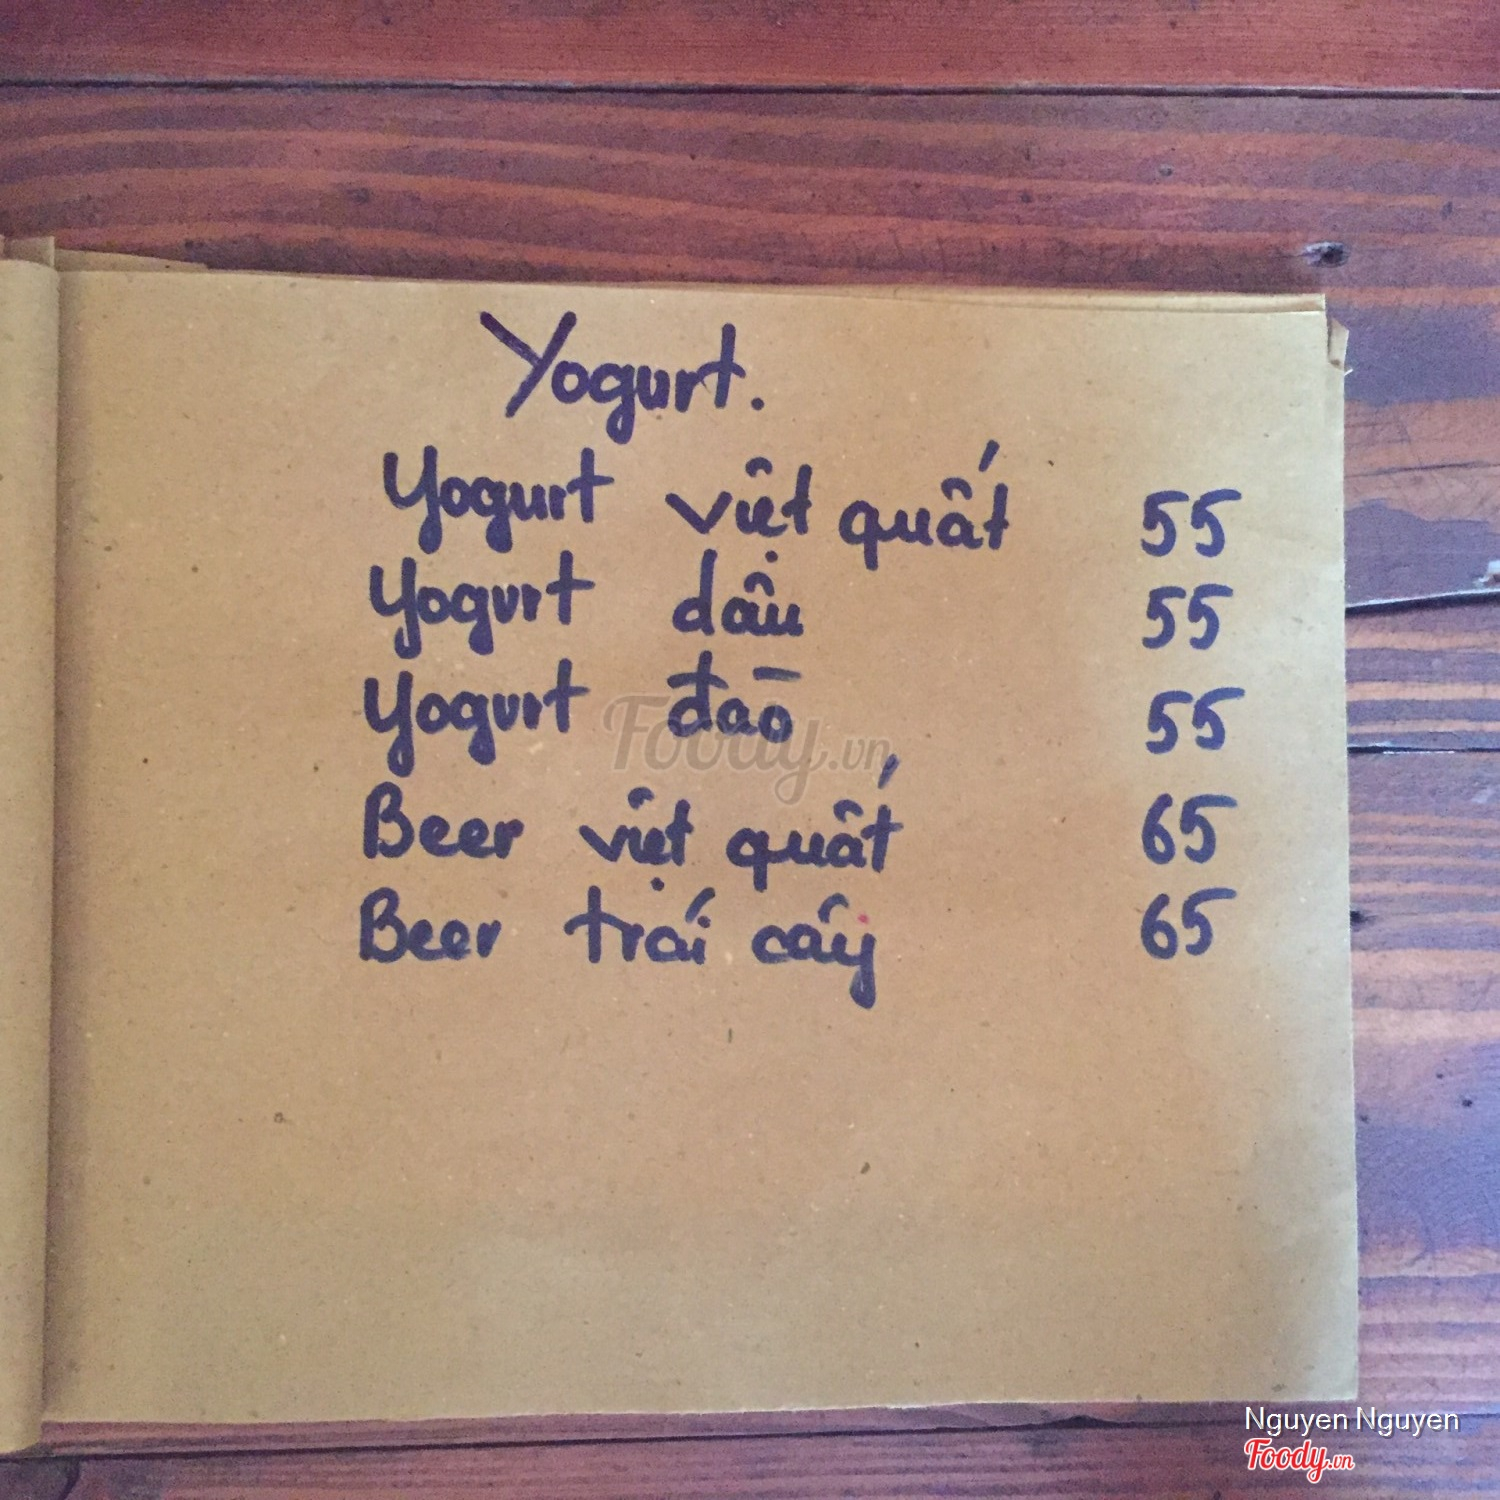 Yogurt.
Yogurt việt quất 55
Yogurt dâu 55
Yogurt đào 55
Foody.vn
Beer việt quất 65
Beer trái cây 65
Nguyen Nguyen
Foody.vn